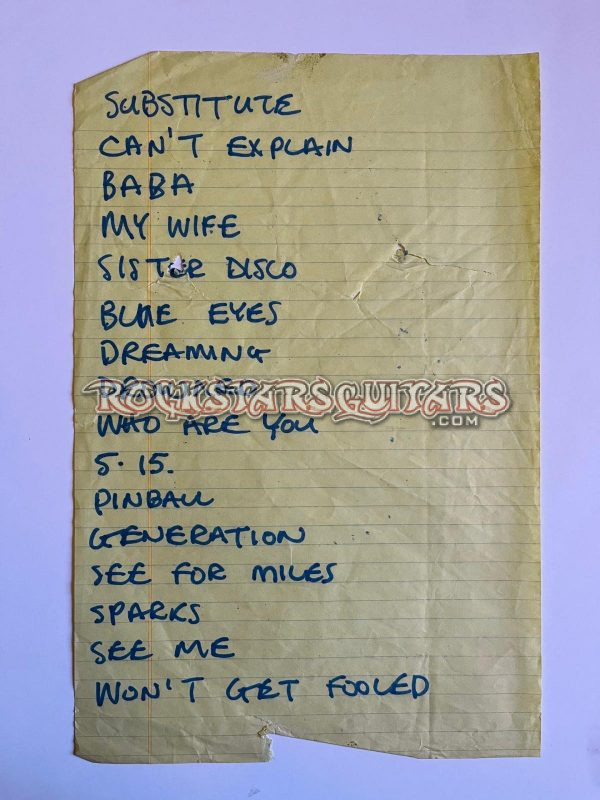 SUBSTITUTE
CAN'T EXPLAIN
BABA
MY WIFE
SISTER DISCO
BLUE EYES
DREAMING
ROCKSTARSGUITARS
.COM
WHO ARE YOU
5.15.
PINBALL
GENERATION
SEE FOR MILES
SPARKS
SEE ME
WON'T GET FOOLED